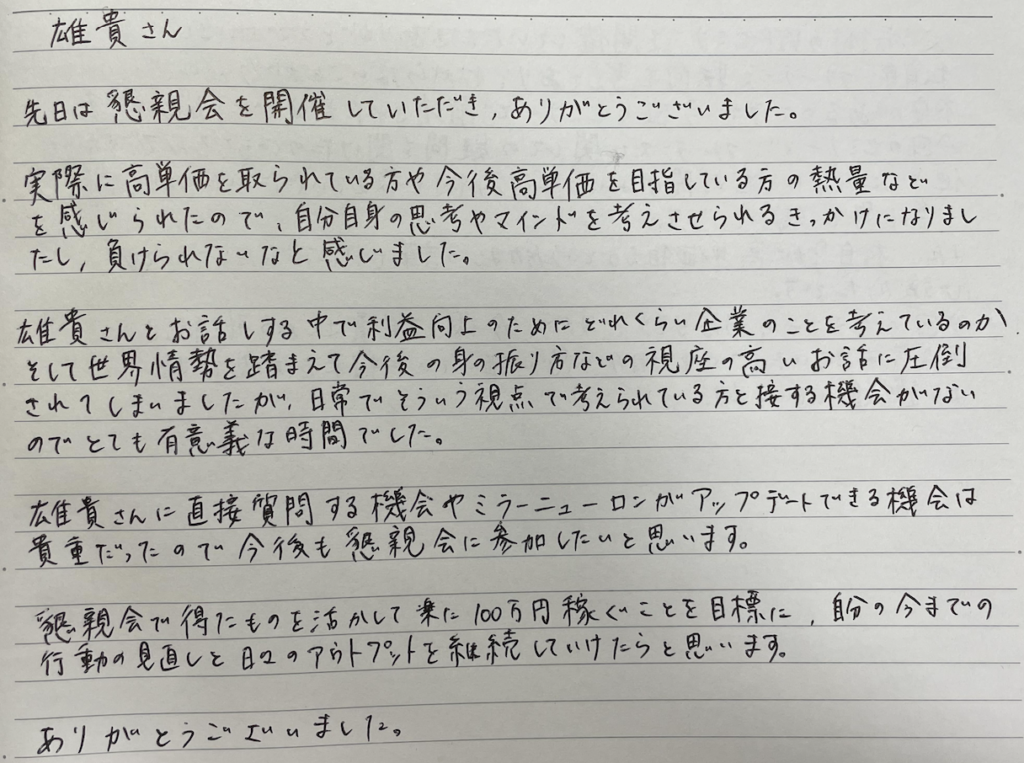 雄貴さん
先日は懇親会を開催していただき,ありがとうございました。
実際に高単価を取られている方や今後高単価を目指している方の熱量など
を感じられたので,自分自身の思考やマインドを考えさせられるきっかけになりまし
たし,負けられないなと感じました。
雄貴さんとお話しする中で利益向上のためにどれくらい企業のことを考えているのか
そして世界情勢を踏まえて今後の身の振り方などの視座の高いお話に圧倒
されてしまいましたが,日常でそういう視点で考えられている方と接する機会がない
のでとても有意義な時間でした。
雄貴さんに直接質問する機会やミラーニューロンがアップデートできる機会は
貴重だったので今後も懇親会に参加したいと思います。
懇親会で得たものを活かして楽に100万円稼ぐことを目標に,自分の今までの
行動の見直しと日々のアウトプットを継続していけたらと思います。
ありがとうございました。